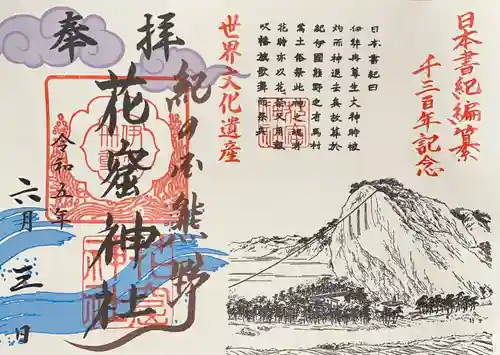 日本書紀編纂
千三百年記念
日本書紀曰
伊弉冉尊生火神時被
灼而神退去矣故葬於
紀伊國熊野之有馬村
焉土俗祭此神之魂者
花時亦以花祭又用鼓
吹幡旗歌舞而祭矣
世界文化遺産
紀の国熊野
奉拝
花窟神社
令和五年
六月三日